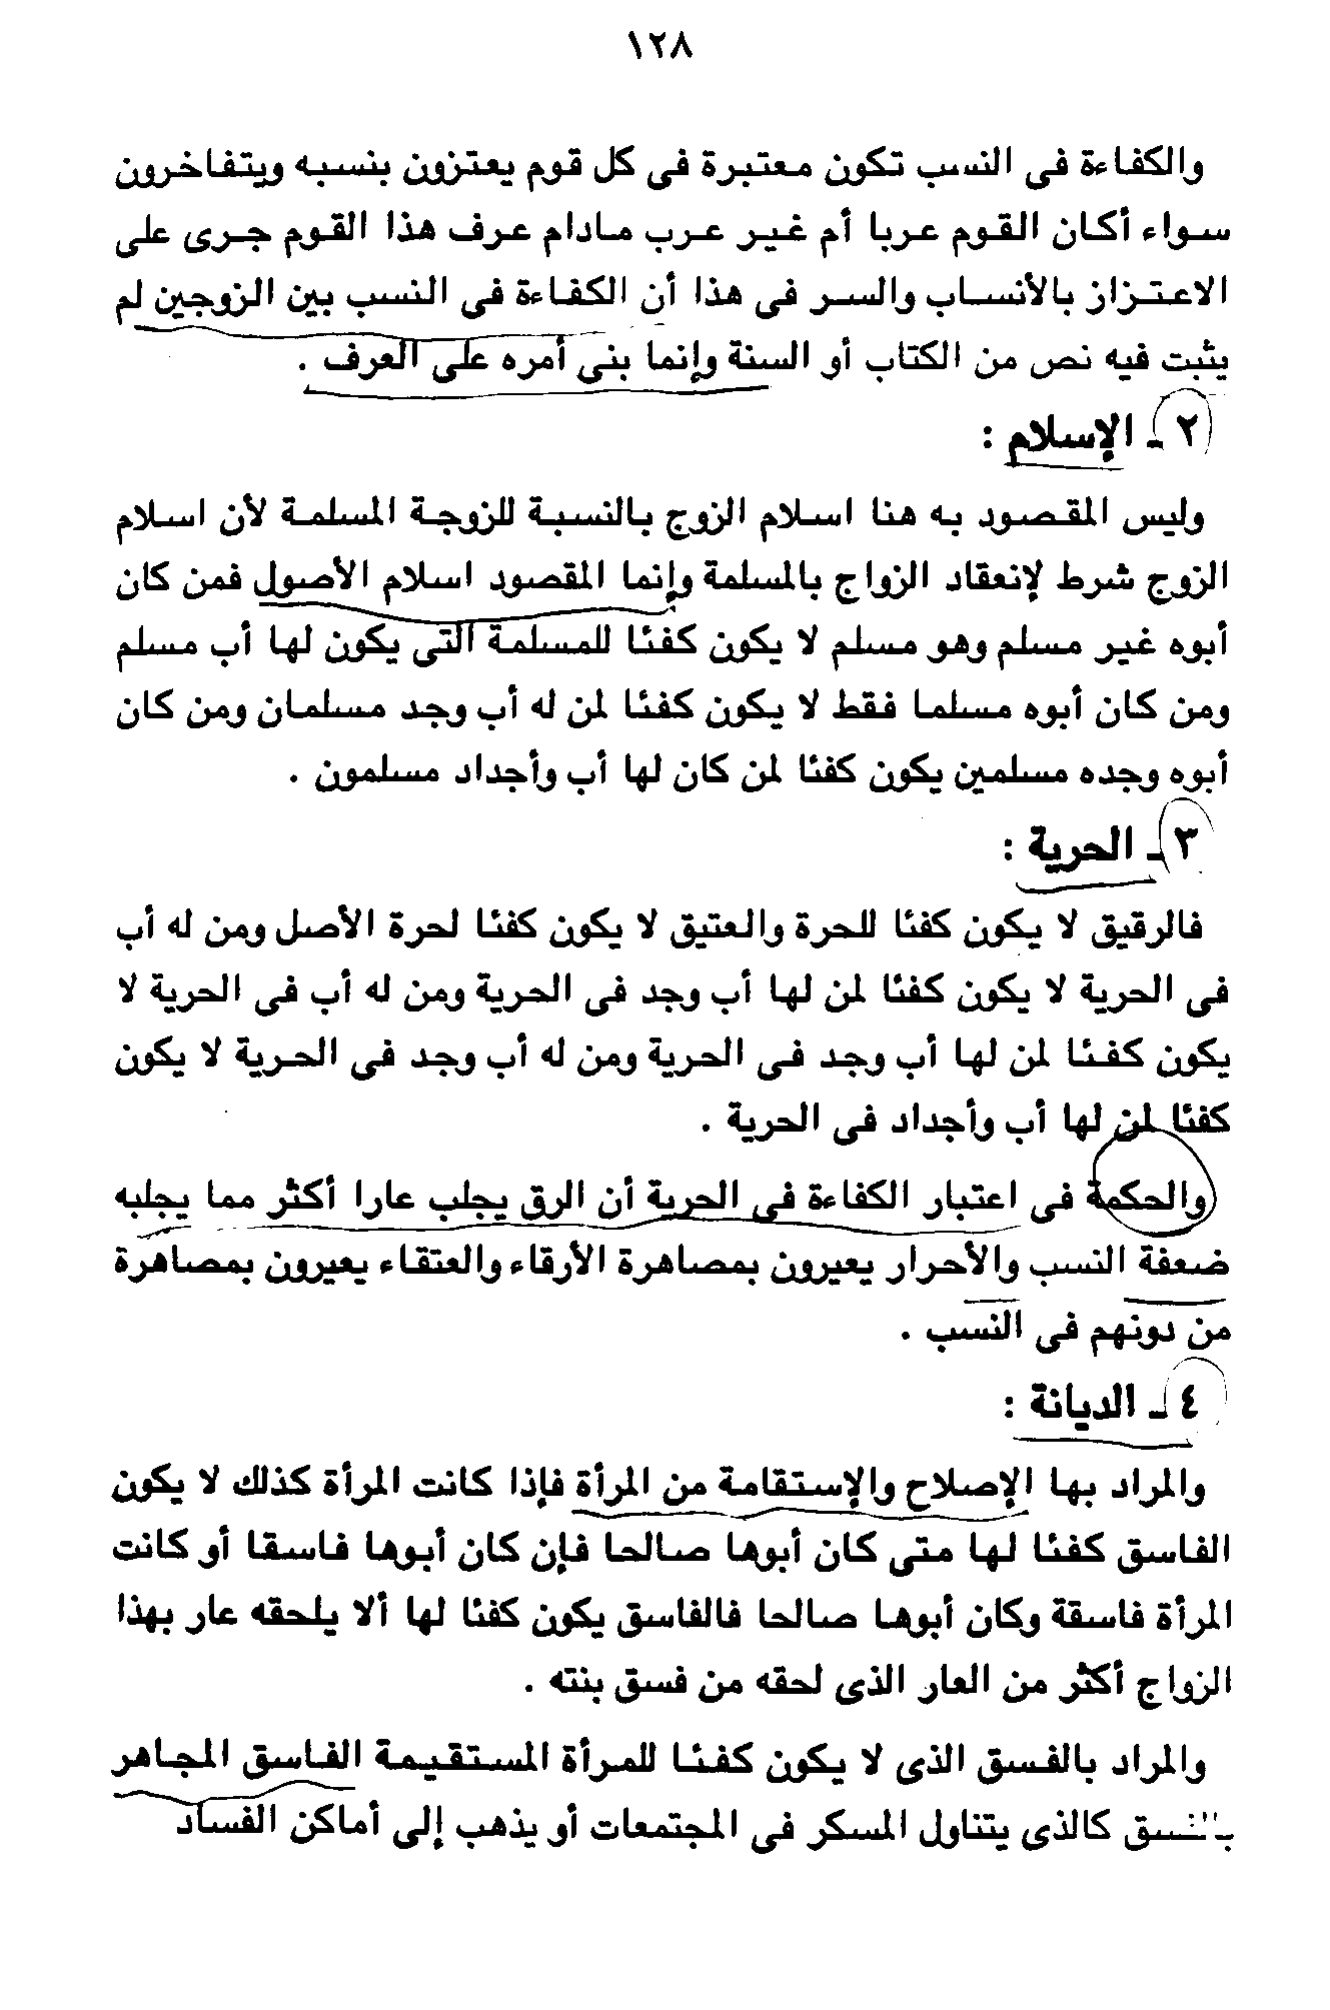 ١٢٨
والكفاءة فى النسب تكون معتبرة فى كل قوم يعتزون بنسبه ويتفاخرون
سواء أكان القوم عربا أم غير عرب مادام عرف هذا القوم جرى على
الاعتزاز بالأنساب والسر فى هذا أن الكفاءة فى النسب بين الزوجين لم
يثبت فيه نص من الكتاب أو السنة وإنما بنى أمره على العرف .
٢ - الإسلام :
وليس المقصود به هنا اسلام الزوج بالنسبة للزوجة المسلمة لأن اسلام
الزوج شرط لإنعقاد الزواج بالمسلمة وإنما المقصود اسلام الأصول فمن كان
أبوه غير مسلم وهو مسلم لا يكون كفئا للمسلمة التى يكون لها أب مسلم
ومن كان أبوه مسلما فقط لا يكون كفئا لمن له أب وجد مسلمان ومن كان
أبوه وجده مسلمين يكون كفئا لمن كان لها أب وأجداد مسلمون .
٣ - الحرية :
فالرقيق لا يكون كفئا للحرة والعتيق لا يكون كفئا لحرة الأصل ومن له أب
فى الحرية لا يكون كفئا لمن لها أب وجد فى الحرية ومن له أب فى الحرية لا
يكون كفئا لمن لها أب وجد فى الحرية ومن له أب وجد فى الحرية لا يكون
كفئا لمن لها أب وأجداد فى الحرية .
والحكمة فى اعتبار الكفاءة فى الحرية أن الرق يجلب عارا أكثر مما يجلبه
ضعفة النسب والأحرار يعيرون بمصاهرة الأرقاء والعتقاء يعيرون بمصاهرة
من دونهم فى النسب .
٤ - الديانة :
والمراد بها الإصلاح والإستقامة من المرأة فإذا كانت المرأة كذلك لا يكون
الفاسق كفئا لها متى كان أبوها صالحا فإن كان أبوها فاسقا أو كانت
المرأة فاسقة وكان أبوها صالحا فالفاسق يكون كفئا لها ألا يلحقه عار بهذا
الزواج أكثر من العار الذى لحقه من فسق بنته .
والمراد بالفسق الذى لا يكون كفئا للمرأة المستقيمة الفاسق المجاهر
بالفسق كالذى يتناول المسكر فى المجتمعات أو يذهب إلى أماكن الفساد